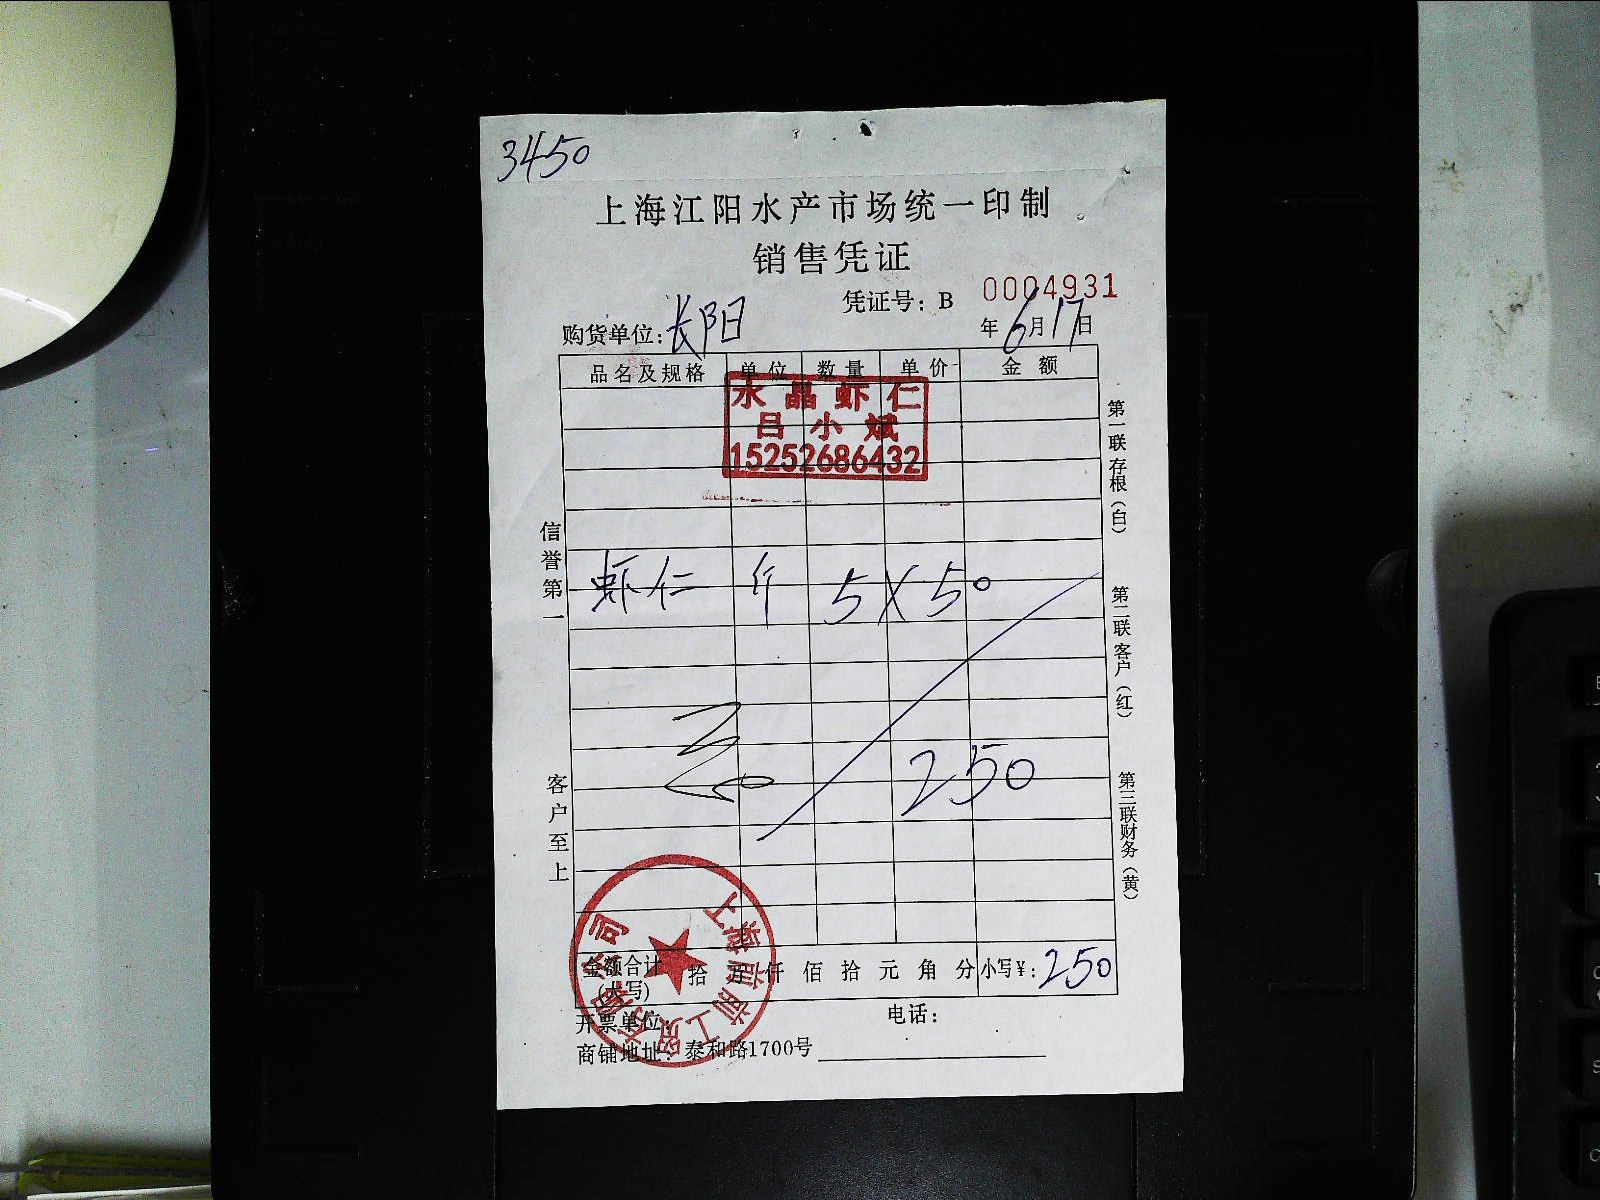 3450
上海江阳水产市场统一印制
销售凭证
凭证号：B 0004931
购货单位：长阳 年6月17日
品名及规格 单位 数量 单价 金额
水晶虾仁
吕小斌
15252686432
虾仁 斤 5×50
250
金额合计(大写) 拾 万 仟 佰 拾 元 角 分 小写¥：250
开票单位： 电话：
商铺地址：泰和路1700号
信誉第一
客户至上
第一联存根（白）
第二联客户（红）
第三联财务（黄）